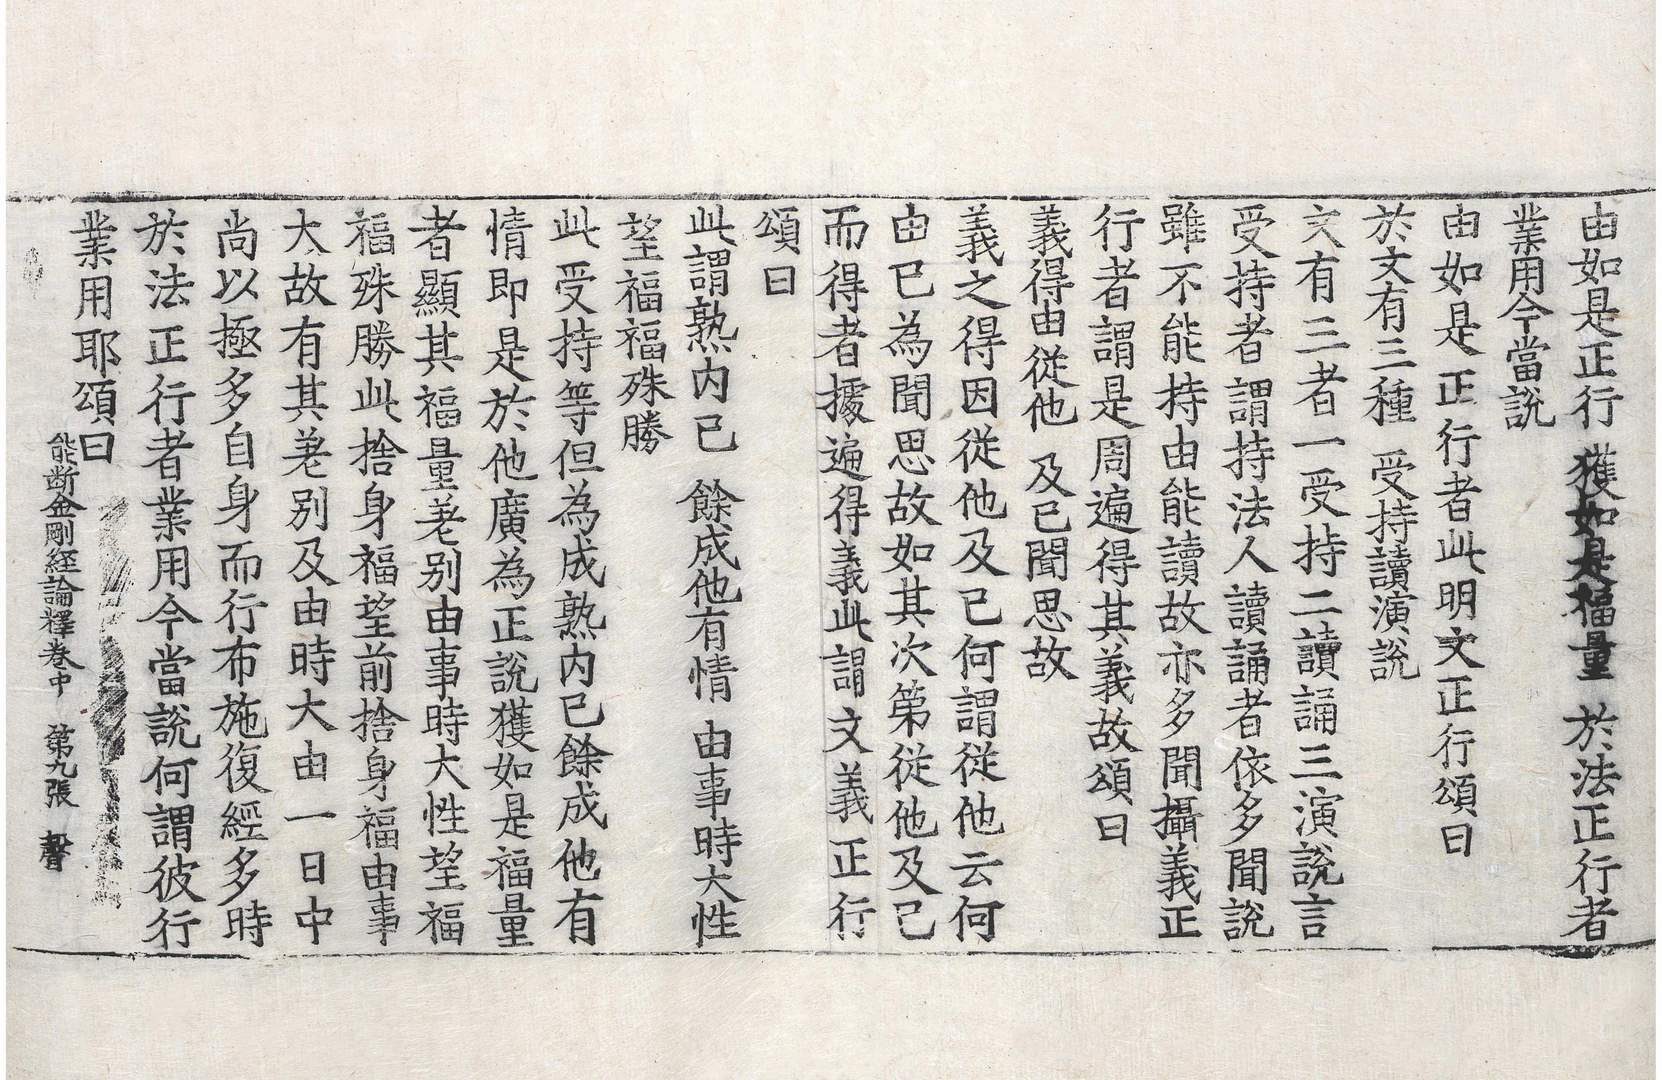 由如是正行 獲如是福量 於法正行者
業用今當說
由如是正行者此明文正行頌曰
於文有三種 受持讀演說
文有三者一受持二讀誦三演說言
受持者謂持法人讀誦者依多聞說
雖不能持由能讀故亦多聞攝義正
行者謂是周遍得其義故頌曰
義得由從他 及己聞思故
義之得因從他及己何謂從他云何
由己為聞思故如其次第從他及己
而得者據遍得義此謂文義正行
頌曰
此謂熟內己 餘成他有情 由事時大性
望福福殊勝
此受持等但為成熟內己餘成他有
情即是於他廣為正說獲如是福量
者顯其福量差別由事時大性望福
福殊勝此捨身福望前捨身福由事
大故有其差別及由時大由一日中
尚以極多自身而行布施復經多時
於法正行者業用今當說何謂彼行
業用耶頌曰
能断金剛經論釋卷中 第九張 罄